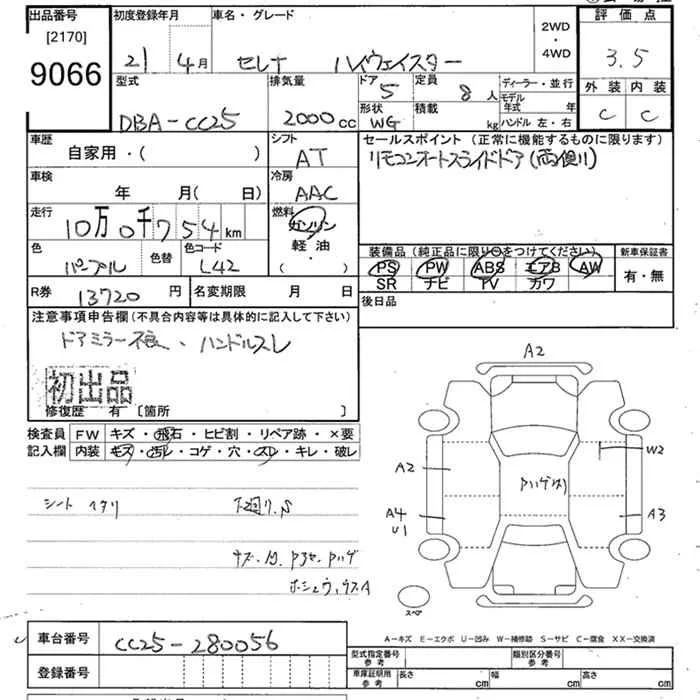 出品番号
[2170]
9066
初度登録年月
21 4月
車名・グレード
セレナ ハイウェイスター
2WD
・
4WD
評価点
3.5
外装 内装
C C
型式
DBA-CC25
排気量
2000cc
ドア
5
定員
8人
形状
WG
積載
kg
ディーラー・並行
モデル
年式 年
ハンドル 左・右
車歴
自家用・( )
シフト
AT
セールスポイント (正常に機能するものに限ります)
リモコンオートスライドドア(両側)
車検
年 月( 日)
冷房
AAC
走行
10万0千754km
燃料
ガソリン
軽油
( )
色
パープル
色替
色コード
L42
装備品 (純正品に限り○をつけてください)
PS PW ABS エアB AW
SR ナビ TV カワ
新車保証書
有・無
R券 13720円
名変期限 月 日
後日品
注意事項申告欄(不具合内容等は具体的に記入して下さい)
ドアミラー不良、ハンドルスレ
初出品
修復歴 有 [箇所 ]
検査員
記入欄
FW キズ・飛石・ヒビ割・リペア跡・×要
内装 キズ・汚レ・コゲ・穴・スレ・キレ・破レ
シート ヘタリ
下廻り.S
A2
A2
A4
U1
W2
A3
スペア
A-キズ E-エクボ U-凹み W-補修跡 S-サビ C-腐食 XX-交換済
車台番号 CC25-280056
登録番号
型式指定番号
参考
類別区分番号
参考
車庫証明用
参考
長さ cm 幅 cm 高さ cm